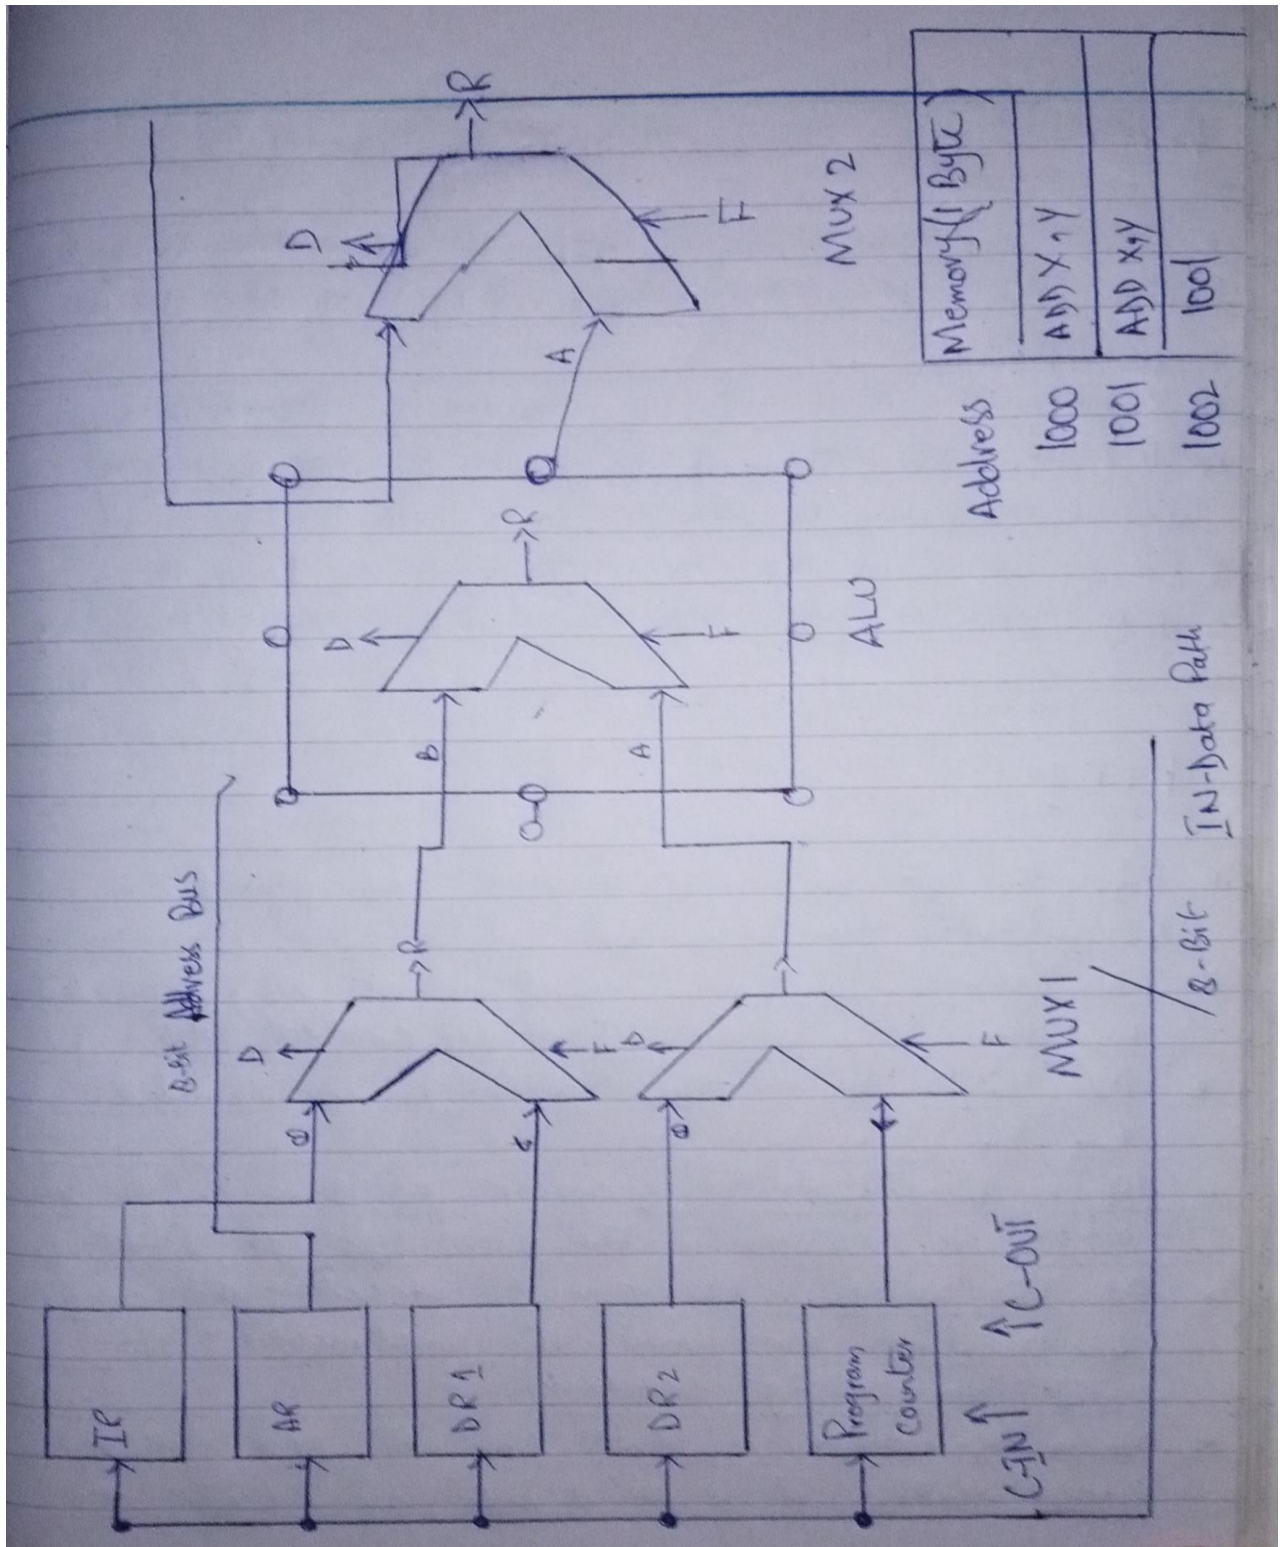 IR
AR
DR1
DR2
Program
Counter
C-IN
C-OUT
8-Bit Address Bus
D
F
R
D
F
MUX 1
8-Bit IN-Data Path
B
A
D
F
R
ALU
A
D
F
R
MUX 2
Address
Memory (1 Byte)
1000 ADD X,Y
1001 ADD X,Y
1002 1001